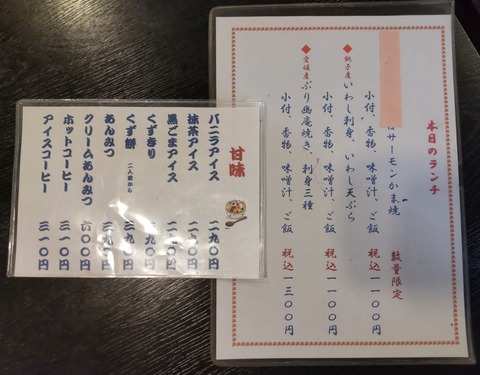 本日のランチ
サーモンかま焼 数量限定
小付、香物、味噌汁、ご飯 税込一一〇〇円
◆銚子産 いわし刺身、いわし天ぷら
小付、香物、味噌汁、ご飯 税込一一〇〇円
◆愛媛産 ぶり幽庵焼き、刺身三種
小付、香物、味噌汁、ご飯 税込一三〇〇円
甘味
バニラアイス 一九〇円
抹茶アイス 一九〇円
黒ごまアイス 一九〇円
くずきり
くず餅 二人前から
あんみつ
クリームあんみつ 六〇〇円
ホットコーヒー 三一〇円
アイスコーヒー 三一〇円